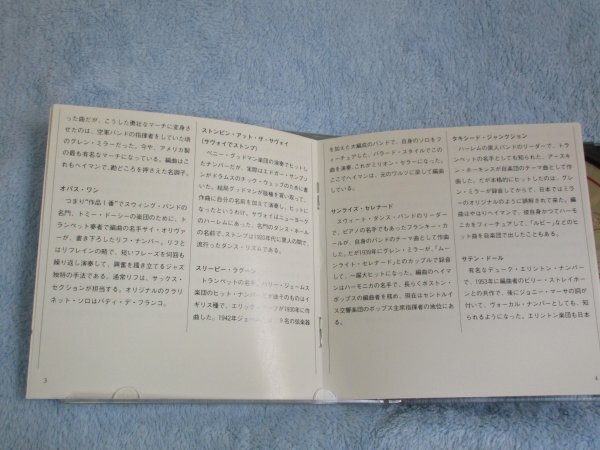 った曲だが、こうした勇壮なマーチに変身さ
せたのは、空軍バンドの指揮者をしていた頃
のグレン・ミラーだった。今や、アメリカ製
の最も有名なマーチになっている。編曲はこ
れもヘイマンで、勘どころを押さえた名調子。
オパス・ワン
つまり“作品1番”でスウィング・バンドの
名門、トミー・ドーシーの楽団のために、ト
ランペット奏者で編曲の名手サイ・オリヴァ
ーが、書き下ろしたリフ・ナンバー。リフと
はリフレインの略で、短いフレーズを何回も
繰り返し演奏して、興奮を掻き立てるジャズ
独特の手法である。通常リフは、サックス・
セクションが担当する。オリジナルのクラリ
ネット・ソロはバディ・デ・フランコ。
3
ストンピン・アット・ザ・サヴォイ
(サヴォイでストンプ)
ベニー・グッドマン楽団の演奏でヒットし
たナンバーだが、実際はエドガー・サンプソ
ンがドラムスのチック・ウェッブのために書
いた。結局グッドマンが版権を買い取って、
作曲に自分の名前を加えて演奏し、ヒットに
なったというわけ。サヴォイはニューヨーク
のハーレムにあった、名門のダンス・ホール
の名前で、ストンプは1920年代に黒人の間で
流行ったダンス・リズムである。
スリーピー・ラグーン
トランペットの名手、ハリー・ジェームス
楽団のヒット・ナンバー
ギリス種で、エリック・
曲した。1942年ジェームス
9名の弦楽器
を加えた大編成のバンドで、自身のソロをフ
ィーチュアした、バラード・スタイルでこの
曲を演奏、これがミリオン・セラーになった。
ここでヘイマンは、元のワルツに戻して編曲
している。
サンライズ・セレナード
スウィート・ダンス・バンドのリーダー
で、ピアノの名手でもあったフランキー・カ
ールが、自身のバンドのテーマ曲として作曲
した。だが1939年にグレン・ミラーが、「ムー
ンライト・セレナード」とのカップルで録音
して、一層大ヒットになった。編曲のヘイマ
ンはハーモニカの名手で、長らくボストン・
ポップスの編曲者を務め、現在はセントルイ
ス交響楽団のポップス主席指揮者の地位にあ
る。
タキシード・ジャンクション
ハーレムの黒人バンドのリーダーで、トラ
ンペットの名手としても知られた、アースキ
ン・ホーキンスが自楽団のテーマ曲として作
曲した。だが本格的にヒットしたのは、グレ
ン・ミラーが録音してからで、日本ではミラ
ーのオリジナルのように誤解されて来た。編
曲はやはりヘイマンで、彼自身かつてハーモ
ニカをフィーチュアして、「ルビー」などのヒ
ット曲を楽団で出したこともある。
サテン・ドール
有名なデューク・エリントン・ナンバー
で、1953年に編曲者のビリー・ストレイホー
ンとの共作で、後にジョニー・マーサの詞が
付いて、ヴォーカル・ナンバーとしても、知
られるようになった。エリントン楽団も日本
4